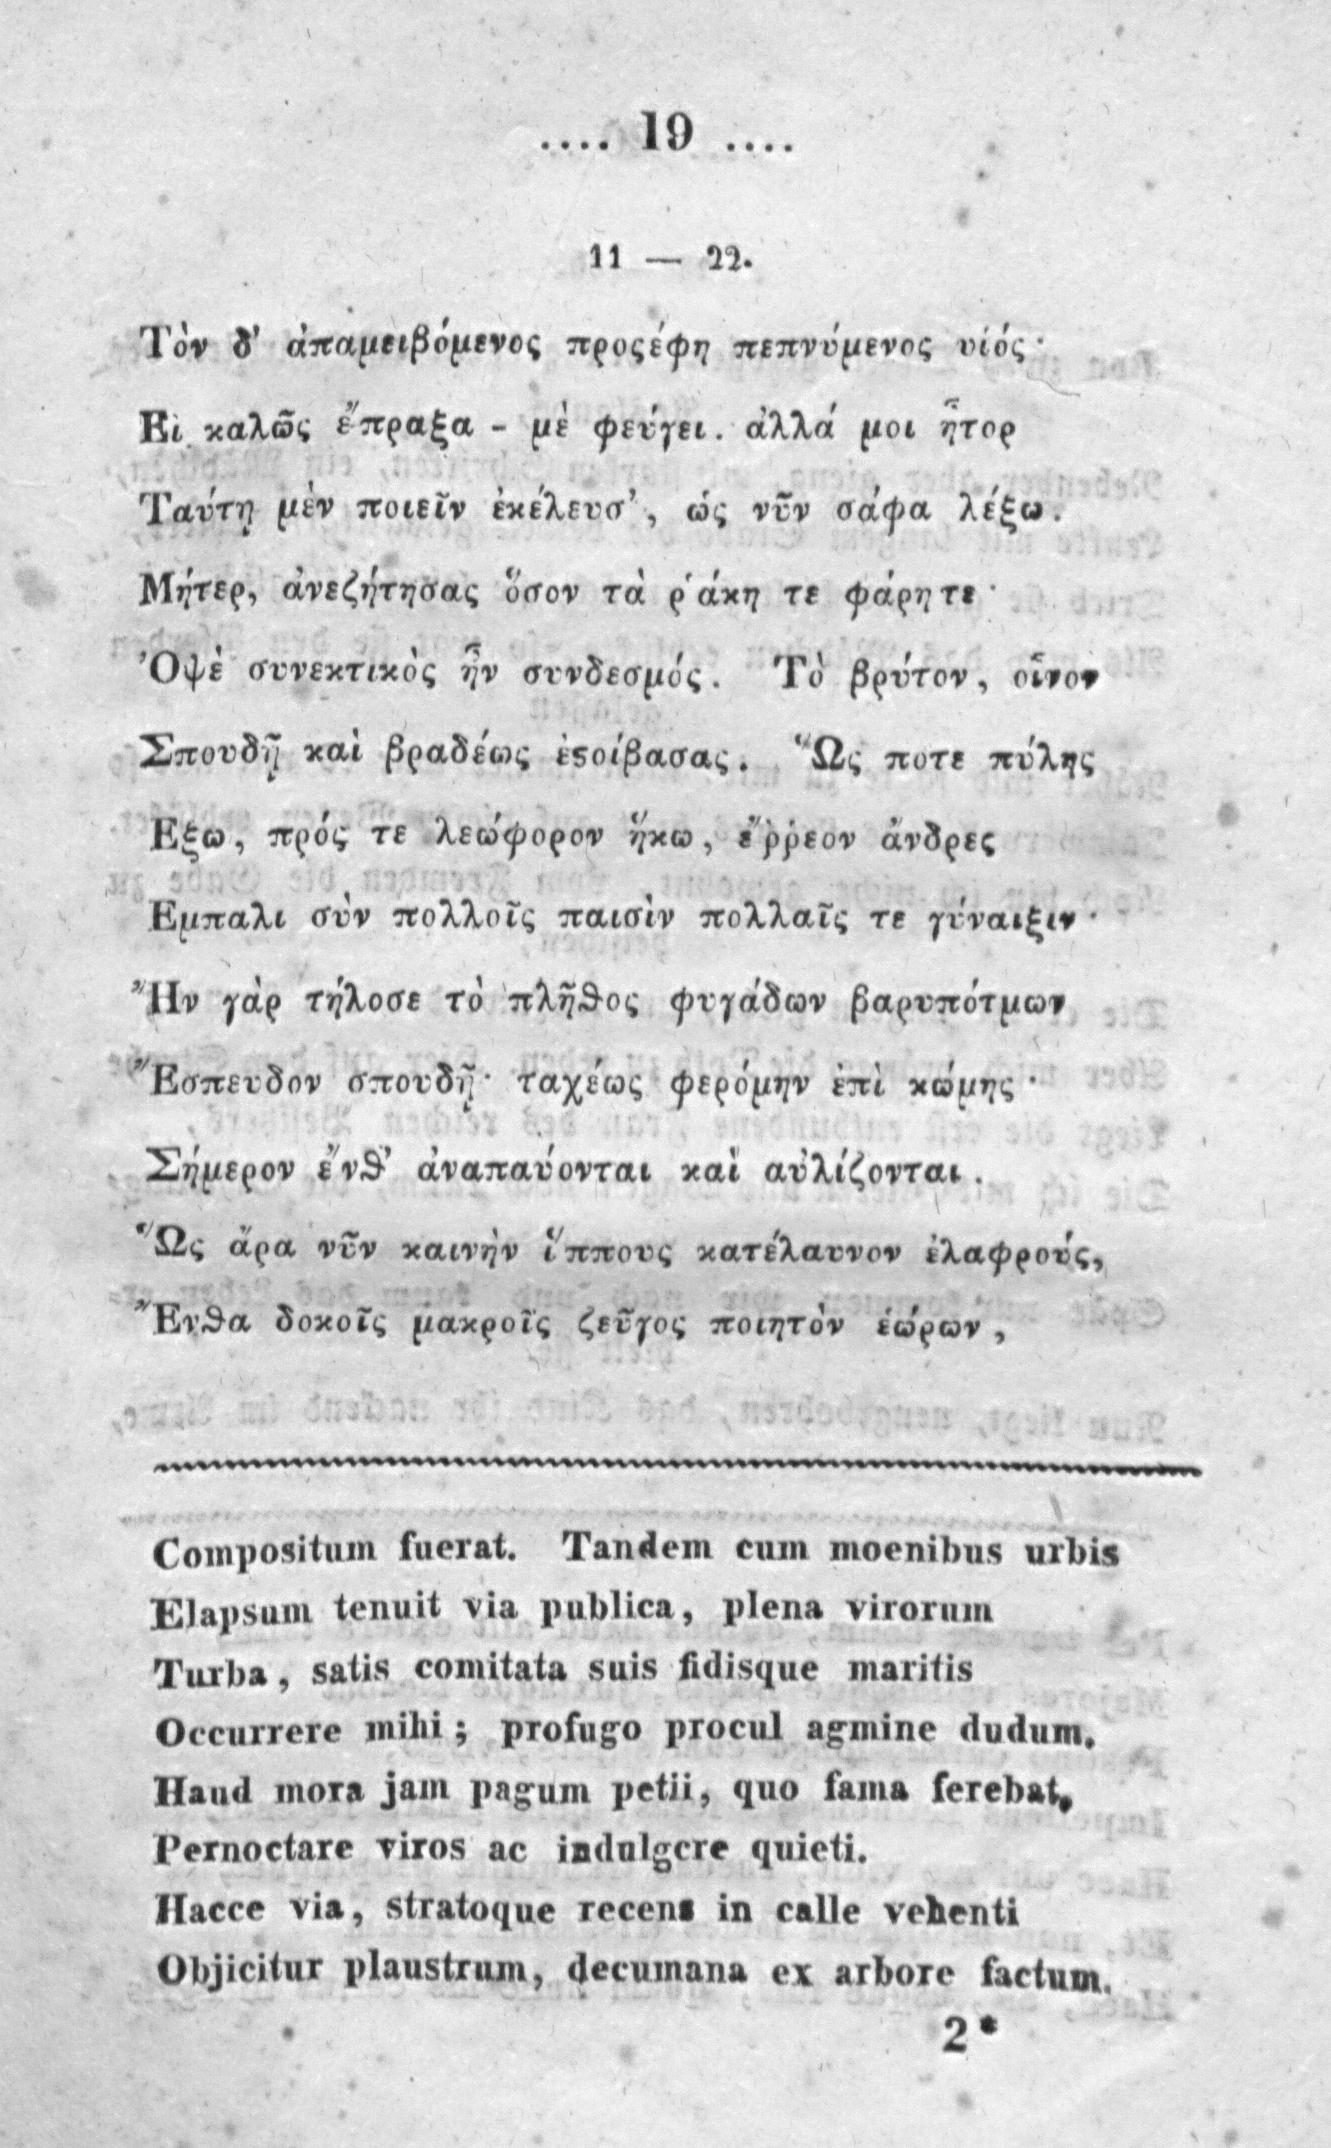 .... 19 ....
11 — 22.
Τὸν δ' ἀπαμειβόμενος προςέφη πεπνύμενος υἱός·
Εἰ καλῶς ἔπραξα - μὲ φεύγει. ἀλλά μοι ἦτορ
Ταύτη μὲν ποιεῖν ἐκέλευσ', ὡς νῦν σάφα λέξω.
Μήτερ, ἀνεζήτησας ὅσον τὰ ῥάκη τε φάρητε·
Ὀψὲ συνεκτικὸς ἦν συνδεσμός. Τὸ βρύτον, οἶνον
Σπουδῇ καὶ βραδέως ἐςοίβασας. Ὥς ποτε πύλης
Εξω, πρός τε λεώφορον ἥκω, ἔῤῥεον ἄνδρες
Εμπαλι σὺν πολλοῖς παισὶν πολλαῖς τε γύναιξιν·
Ἢν γὰρ τήλοσε τὸ πλῆϑος φυγάδων βαρυπότμων
Ἔσπευδον σπουδῇ· ταχέως φερόμην ἐπὶ κώμης·
Σήμερον ἔνϑ' ἀναπαύονται καὶ αὐλίζονται.
Ὥς ἄρα νῦν καινὴν ἵππους κατέλαυνον ἐλαφρούς,
Ἔνϑα δοκοῖς μακροῖς ζεῦγος ποιητὸν ἑώρων,
Compositum fuerat. Tandem cum moenibus urbis
Elapsum tenuit via publica, plena virorum
Turba, satis comitata suis fidisque maritis
Occurrere mihi; profugo procul agmine dudum.
Haud mora jam pagum petii, quo fama ferebat,
Pernoctare viros ac indulgere quieti.
Hacce via, stratoque recens in calle vehenti
Objicitur plaustrum, decumana ex arbore factum.
2*